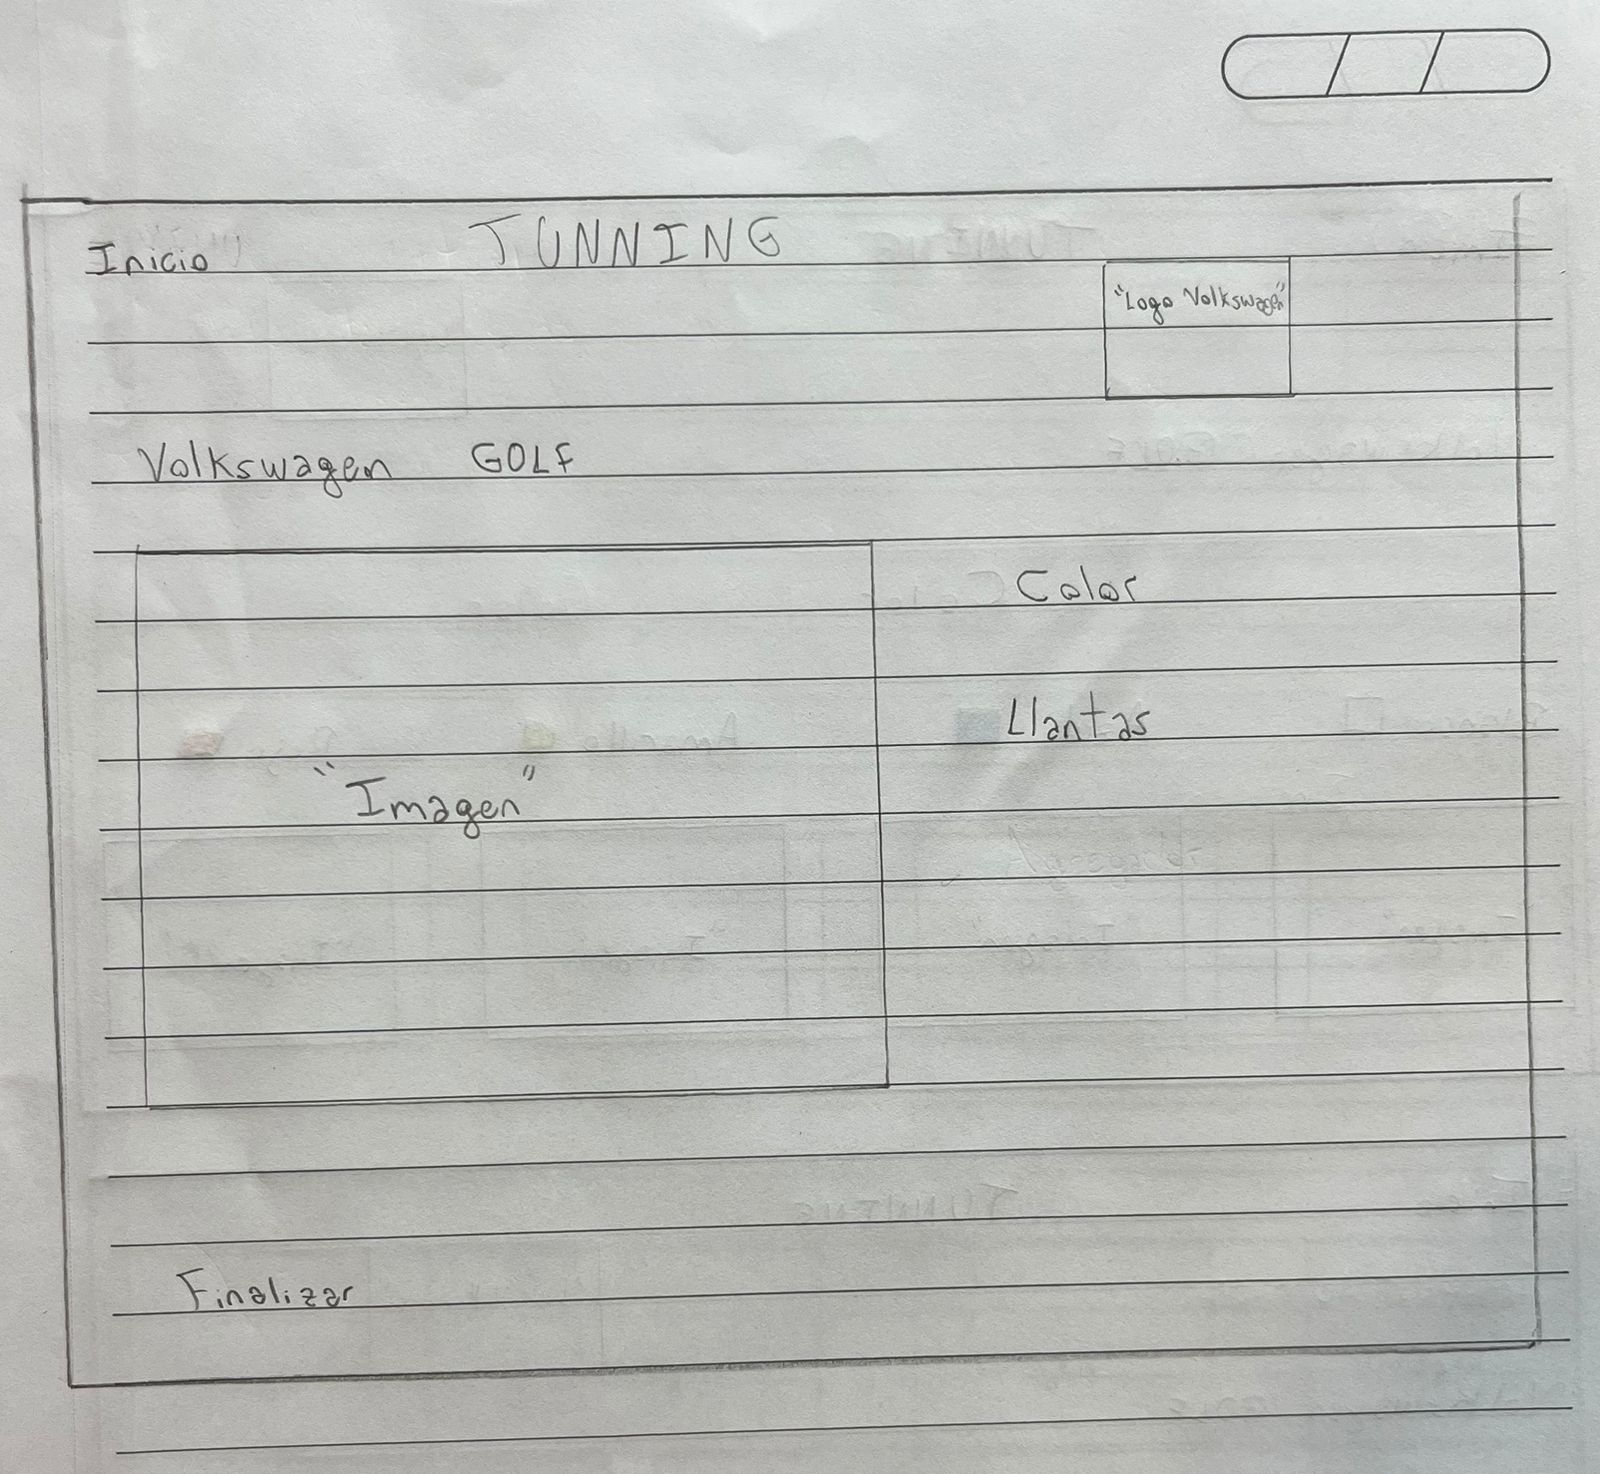 Inicio
TUNNING
"Logo Volkswagen"
Volkswagen GOLF
Color
Llantas
"Imagen"
Finalizar